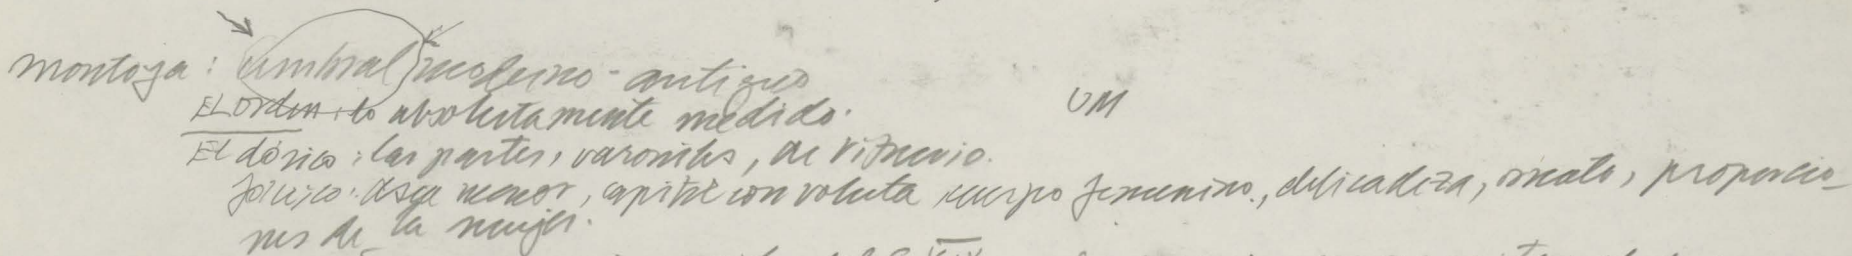 Montoya: umbral moderno - antiguo
El orden: lo absolutamente medido.
UM
El dórico: las partes, varoniles, de Vitruvio.
Jónico: Asia menor, capitel con voluta cuerpo femenino, delicadeza, ornato, proporcio-
nes de la mujer.